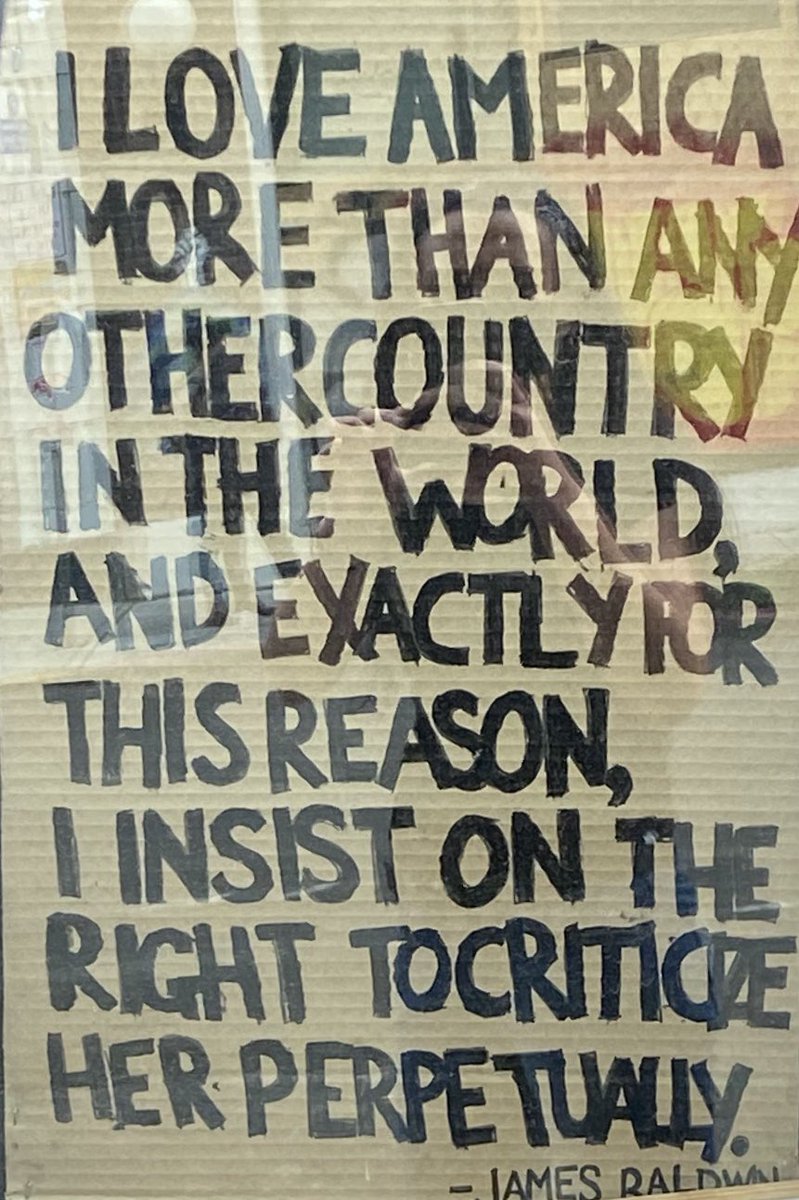 I LOVE AMERICA
MORE THAN ANY
OTHER COUNTRY
IN THE WORLD,
AND EXACTLY FOR
THIS REASON,
I INSIST ON THE
RIGHT TO CRITICIZE
HER PERPETUALLY.
- JAMES BALDWIN